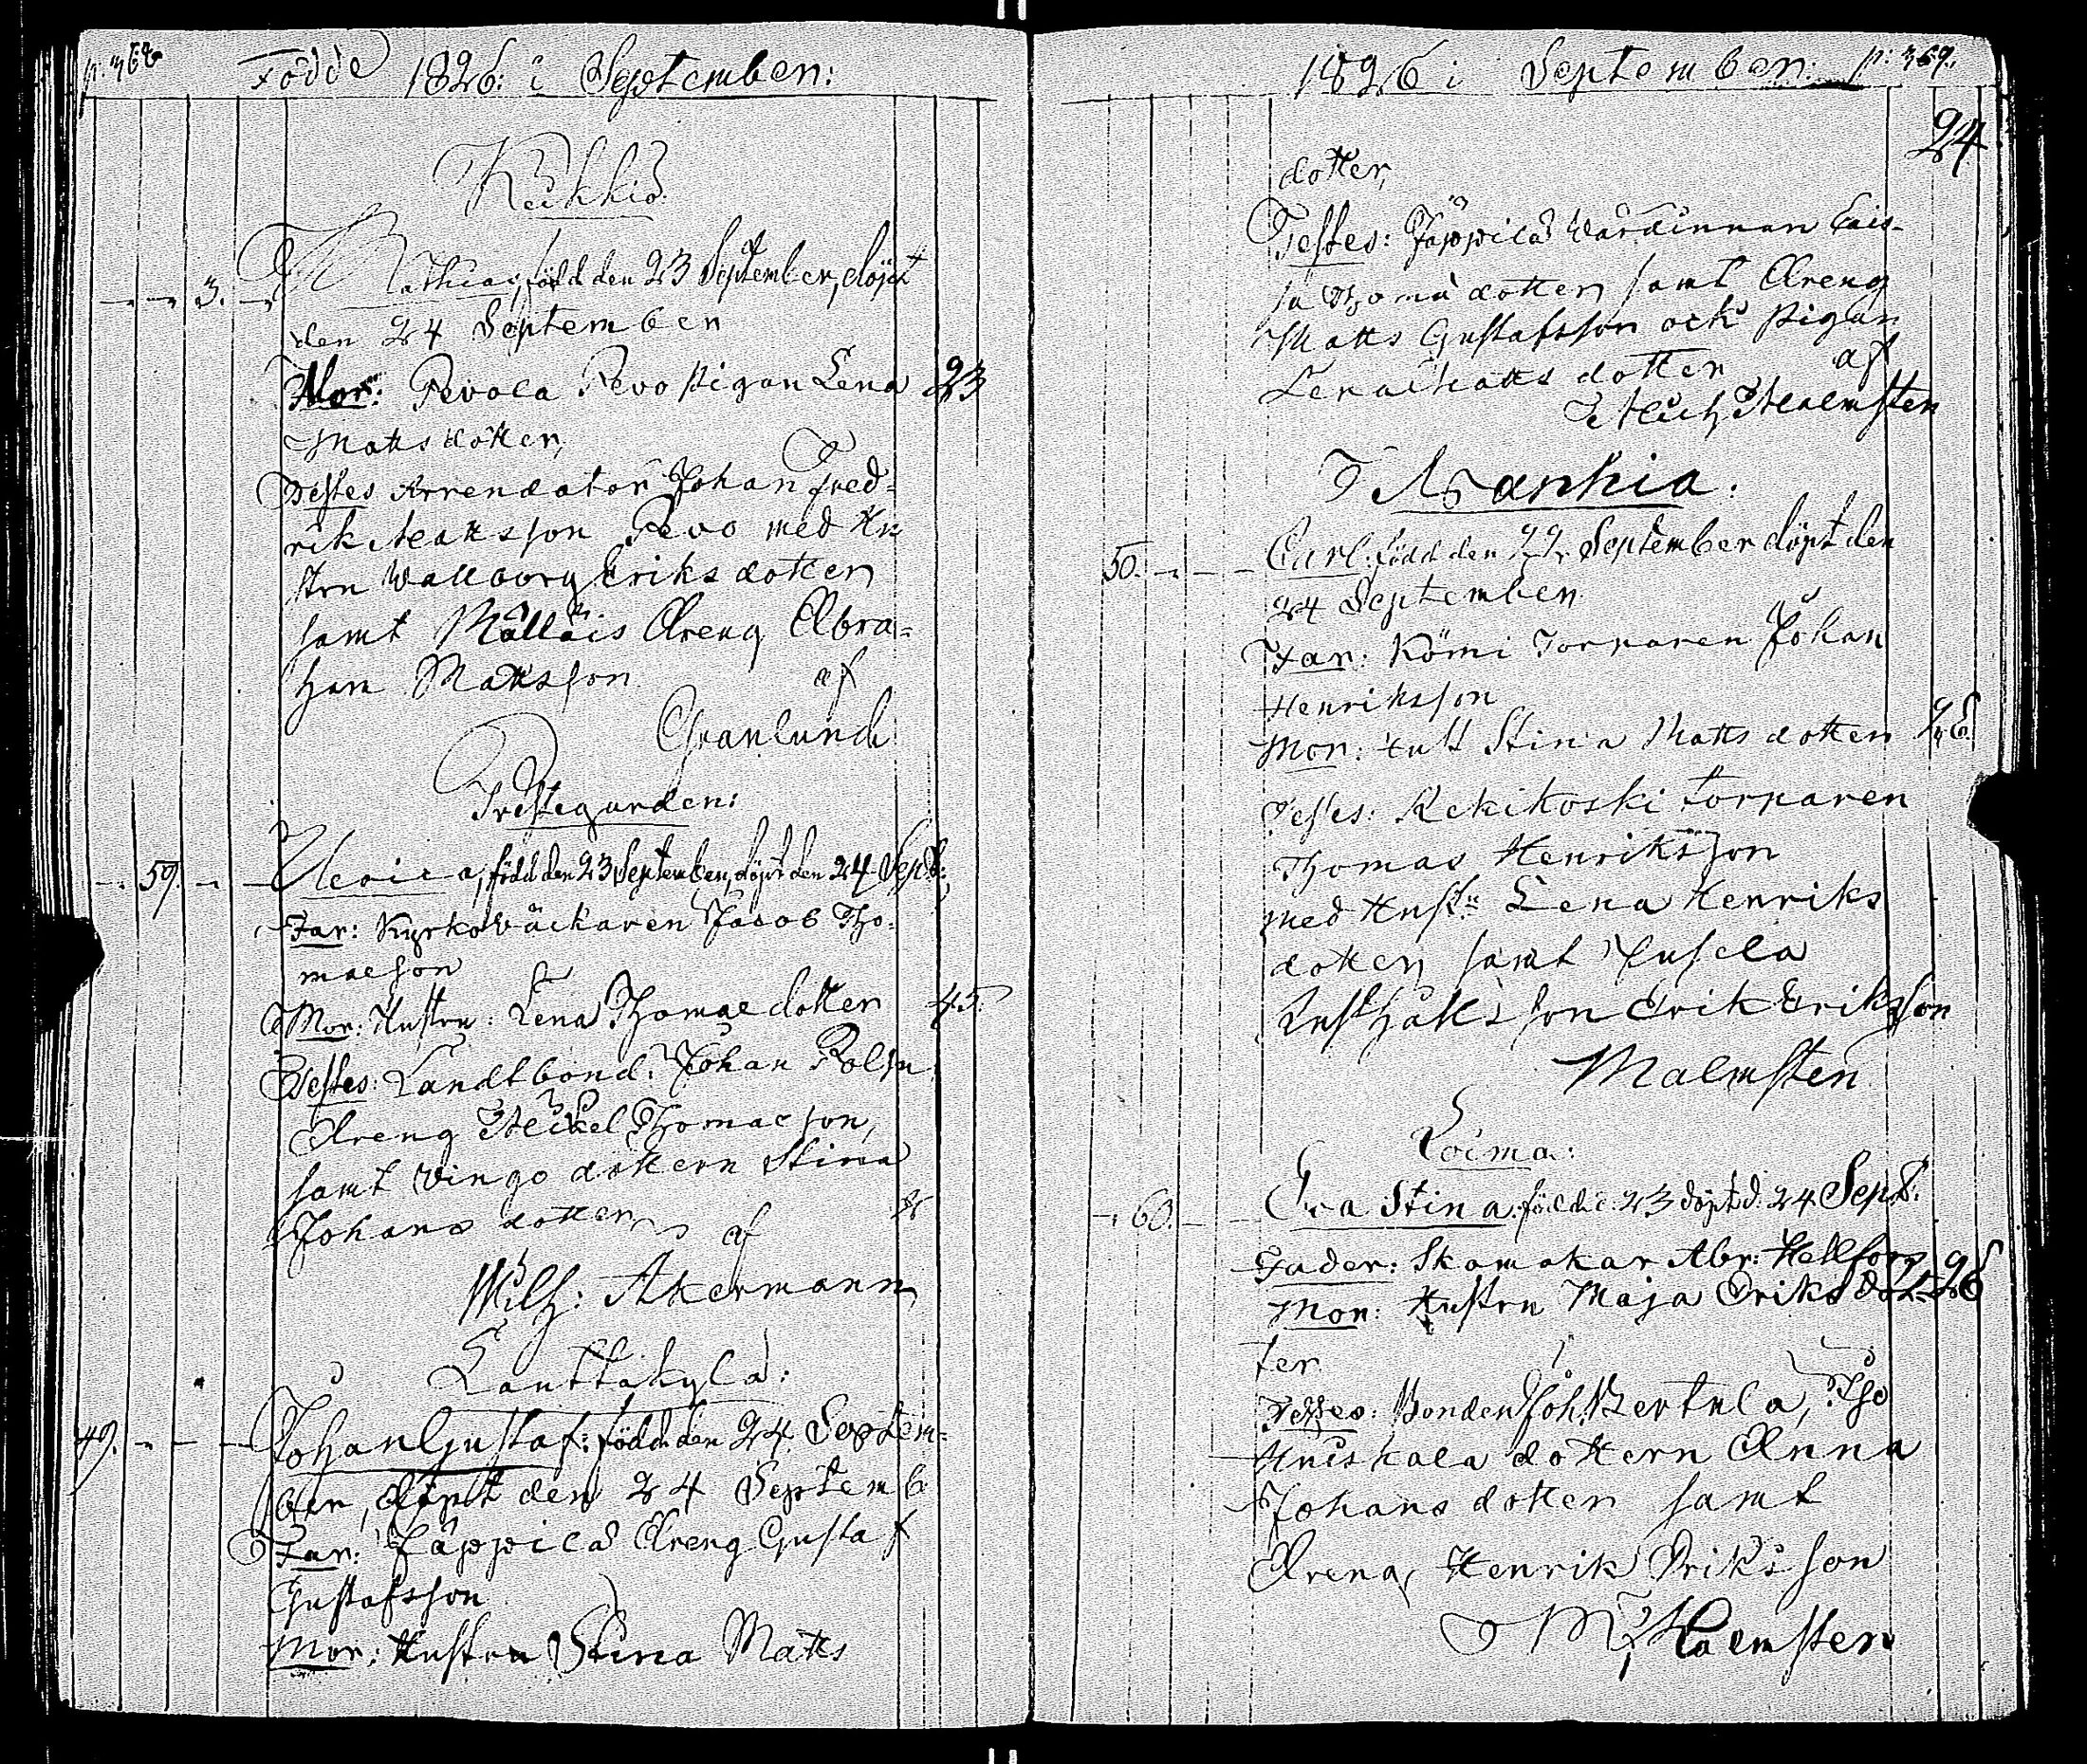 p. 368
Födde 1826: i September:
Kukkis
3. Mathias, född den 23 September, döpt
den 24 September
Mor: Revola Revo Pigan Lena 23
Matts dotter,
Testes Arrendator Johan Fred=
rik Matsson Revo med Hu-
stru Wallborg Eriks dotter
samt Mälläis Dreng Abra=
ham Matsson af
Granlund
Prestegarden:
59. Ulrica, född den 23 September, döpt den 24 Sept:
Far: Kyrkoväckaren Jacob Tho=
maeson
Mor: Hustru: Lena Thomae dotter 45.
Testes: Landtbond: Johan Rolin
Dreng Mickel Thomae son,
samt Vingo dottern Stina
Johans dotter af
Wilh: Åkermann
Lauttakylä:
49. Johan Gustaf: född den 24 Septem=
ber, döpt den 24 Septemb
Far: Jäppilä Dreng Gustaf
Gustafsson
Mor: Hustru Stina Matts
1826 i September: p: 369.
24
dotter,
Testes: Jäppilä Wärdinnan Cais-
sa Thoma dotter samt Dreng
Matts Gustafsson och Pigan
Lena Matts dotter af
Malmsten
Wankia.
50. Carl: född den 22. September döpt den
24 September
Far: Kömi Torparen Johan
Henriksson
Mor: Hust Stina Matts dotter
Testes: Kekikoski Torparen
Thomas Henriksson
med Hustn Lena Henriks
dotter samt Jusela
Inhått's son Erik Eriksson
Malmsten
Loima:
60. Eva Stina född d: 23 döpt d: 24 Sept.
Fader: Skomakar Abr: Hellfors
Mor: Hustru Maja Eriks dot- 26
ter
Testes: Bonden Joh. Bertula, Iso
Huiskala dottern Anna
Johans dotter samt
Dreng Henrik Eriks son
Malmsten